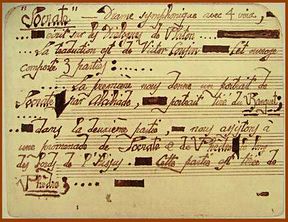 "Socrate" Drame symphonique avec 4 voix,
écrit sur les Dialogues de Platon.
La traduction est de Victor Cousin. Cet ouvrage
comporte 3 parties:
La première nous donne un portrait de
Socrate par Alcibiade, portrait tiré du Banquet;
dans la deuxième partie nous assistons à
une promenade de Socrate & de Phèdre
des bords de l'Ilissus. Cette partie est tirée de
"Phèdre";